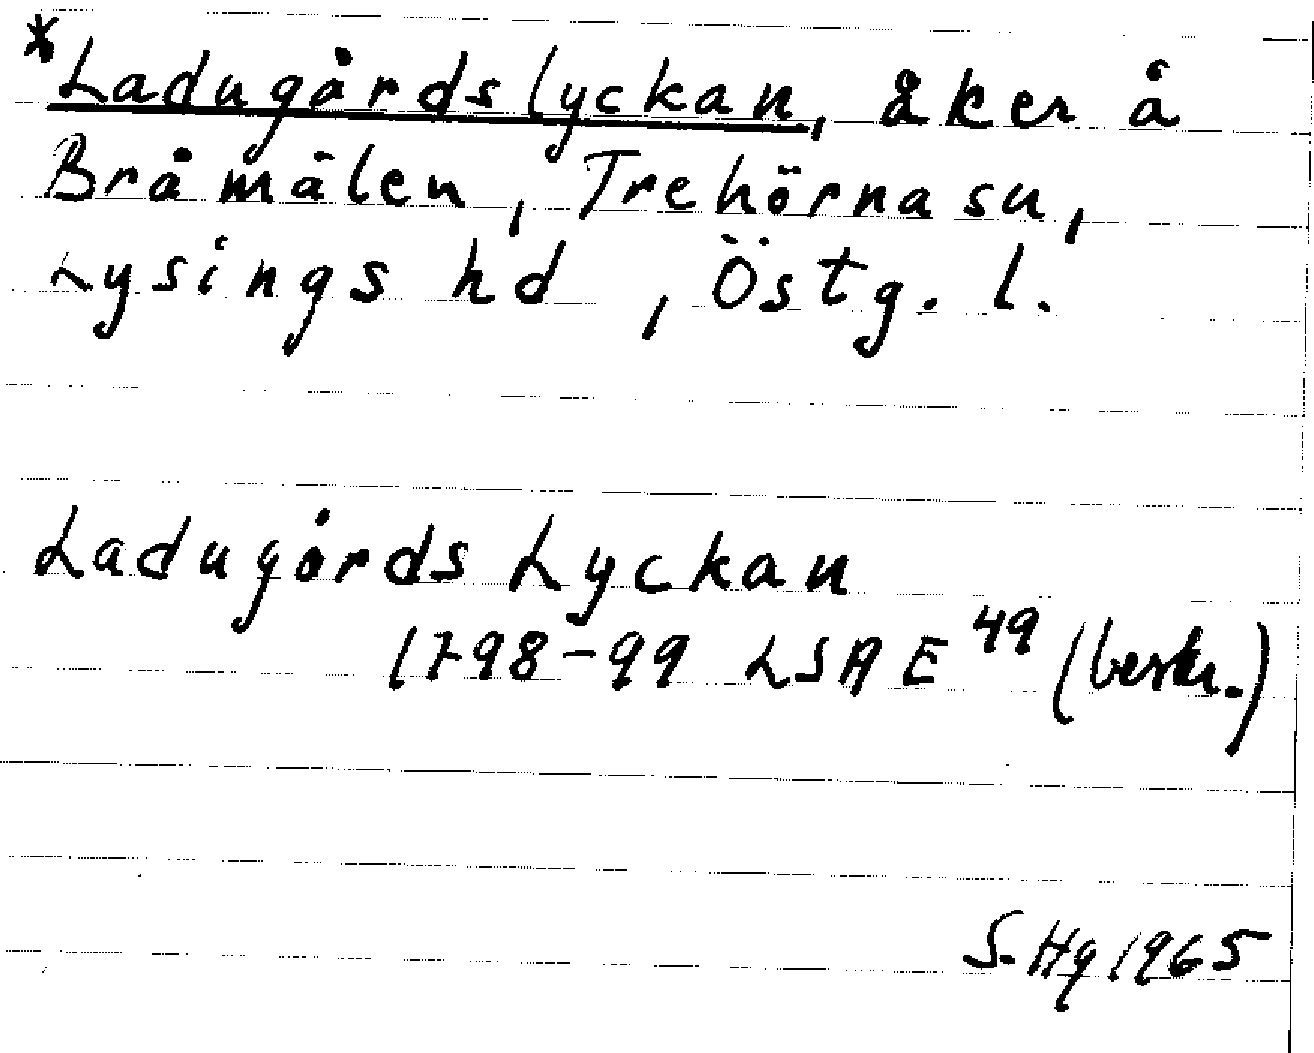 *Ladugårdslyckan, åker å
Bråmålen, Trehörna sn,
Lysings hd, Östg. l.
Ladugårds Lyckan
1798-99 LSA E 49 (beskr.)
S. Hg 1965